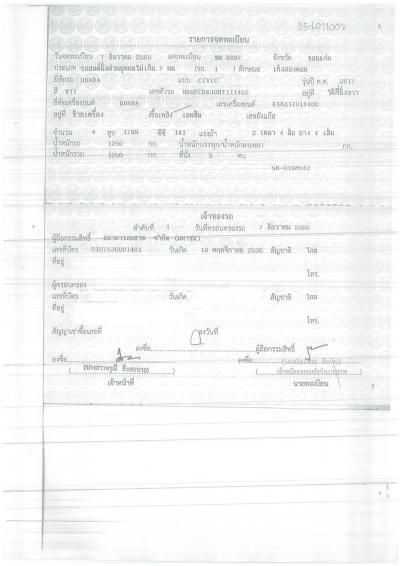 356011002
รายการจดทะเบียน
วันจดทะเบียน 7 ธันวาคม 2560 เลขทะเบียน 8997 จังหวัด ขอนแก่น
ประเภท รถยนต์นั่งส่วนบุคคลไม่เกิน 7 คน (รย. 1 ) ลักษณะ เก๋งสองตอน
ยี่ห้อรถ HONDA แบบ CIVIC รุ่นปี ค.ศ. 2017
สี ขาว เลขตัวรถ อยู่ที่
ยี่ห้อเครื่องยนต์ HONDA เลขเครื่องยนต์
อยู่ที่ ซ้ายเครื่อง เชื้อเพลิง เบนซิน เลขถังแก๊ส
จำนวน 4 สูบ 1799 ซีซี 141 แรงม้า 2 เพลา 4 ล้อ ยาง 4 เส้น
น้ำหนักรถ 1250 กก. น้ำหนักบรรทุก/น้ำหนักลงเพลา กก.
น้ำหนักรวม 1250 กก. ที่นั่ง 5 คน
58-0198542
เจ้าของรถ
ลำดับที่ 1 วันที่ครอบครองรถ 7 ธันวาคม 2560
ผู้ถือกรรมสิทธิ์ ธนาคารธนชาต จำกัด (มหาชน)
เลขที่บัตร 0107536001401 วันเกิด 19 พฤศจิกายน 2536 สัญชาติ ไทย
ที่อยู่
โทร.
ผู้ครอบครอง
เลขที่บัตร วันเกิด สัญชาติ ไทย
ที่อยู่
โทร.
สัญญาเช่าซื้อเลขที่ ลงวันที่
ลงชื่อ ผู้ถือกรรมสิทธิ์
ลงชื่อ ลงชื่อ
เจ้าหน้าที่ นายทะเบียน